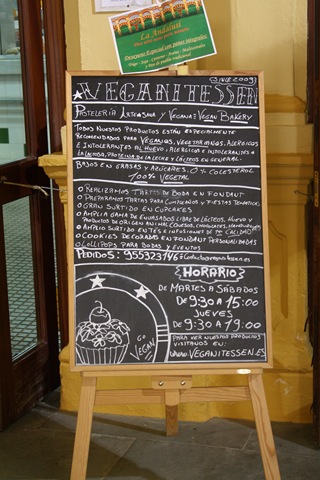 La Andalusí
SINCE 2009
VEGANITESSEN
PASTELERÍA ARTESANA Y VEGANA - VEGAN BAKERY
TODOS NUESTROS PRODUCTOS ESTÁN ESPECIALMENTE
RECOMENDADOS PARA VEGANOS, VEGETARIANOS, ALÉRGICOS
E INTOLERANTES AL HUEVO, ALÉRGICOS E INTOLERANTES A
LA LACTOSA, PROTEINA DE LA LECHE Y LÁCTEOS EN GENERAL.
BAJOS EN GRASAS Y AZÚCARES. 0% COLESTEROL
100% VEGETAL
REALIZAMOS TARTAS DE BODA EN FONDANT
PREPARAMOS TARTAS PARA CUMPLEAÑOS Y FIESTAS TEMÁTICAS
GRAN SURTIDO EN CUPCAKES
AMPLIA GAMA DE ENVASADOS LIBRE DE LÁCTEOS, HUEVO Y
PRODUCTOS DE ORIGEN ANIMAL
AMPLIO SURTIDO EN TÉS E INFUSIONES DE 1ª CALIDAD
COOKIES DECORADAS EN FONDANT PERSONALIZADAS
LOLLIPOPS PARA BODAS Y EVENTOS
PEDIDOS: 955323146
HORARIO
DE MARTES A SÁBADOS
DE 9:30 A 15:00
JUEVES
DE 9:30 A 19:00
GO VEGAN
PARA VER NUESTROS PRODUCTOS
VISITANOS EN:
WWW.VEGANITESSEN.ES